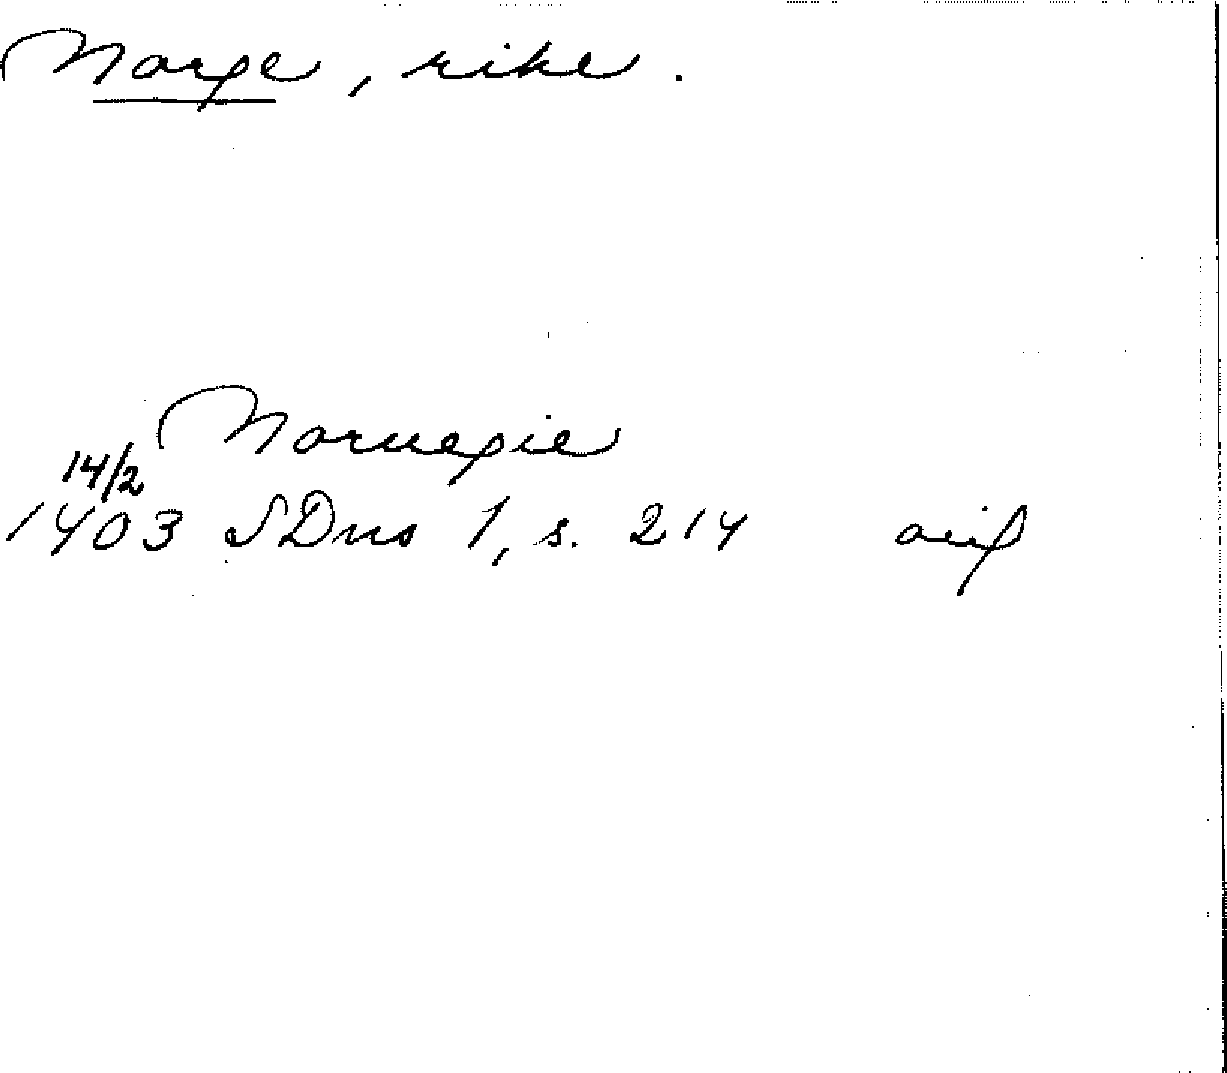 Norge, rike.
Noruegie
14/2
1403 SDns 1, s. 214 avif